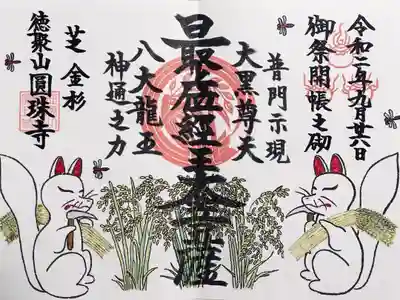 令和二年九月廿六日
御祭開帳之砌
普門示現
大黒尊天
最上位經王大菩薩
八大龍王
神通之力
芝 金杉
徳聚山圓珠寺